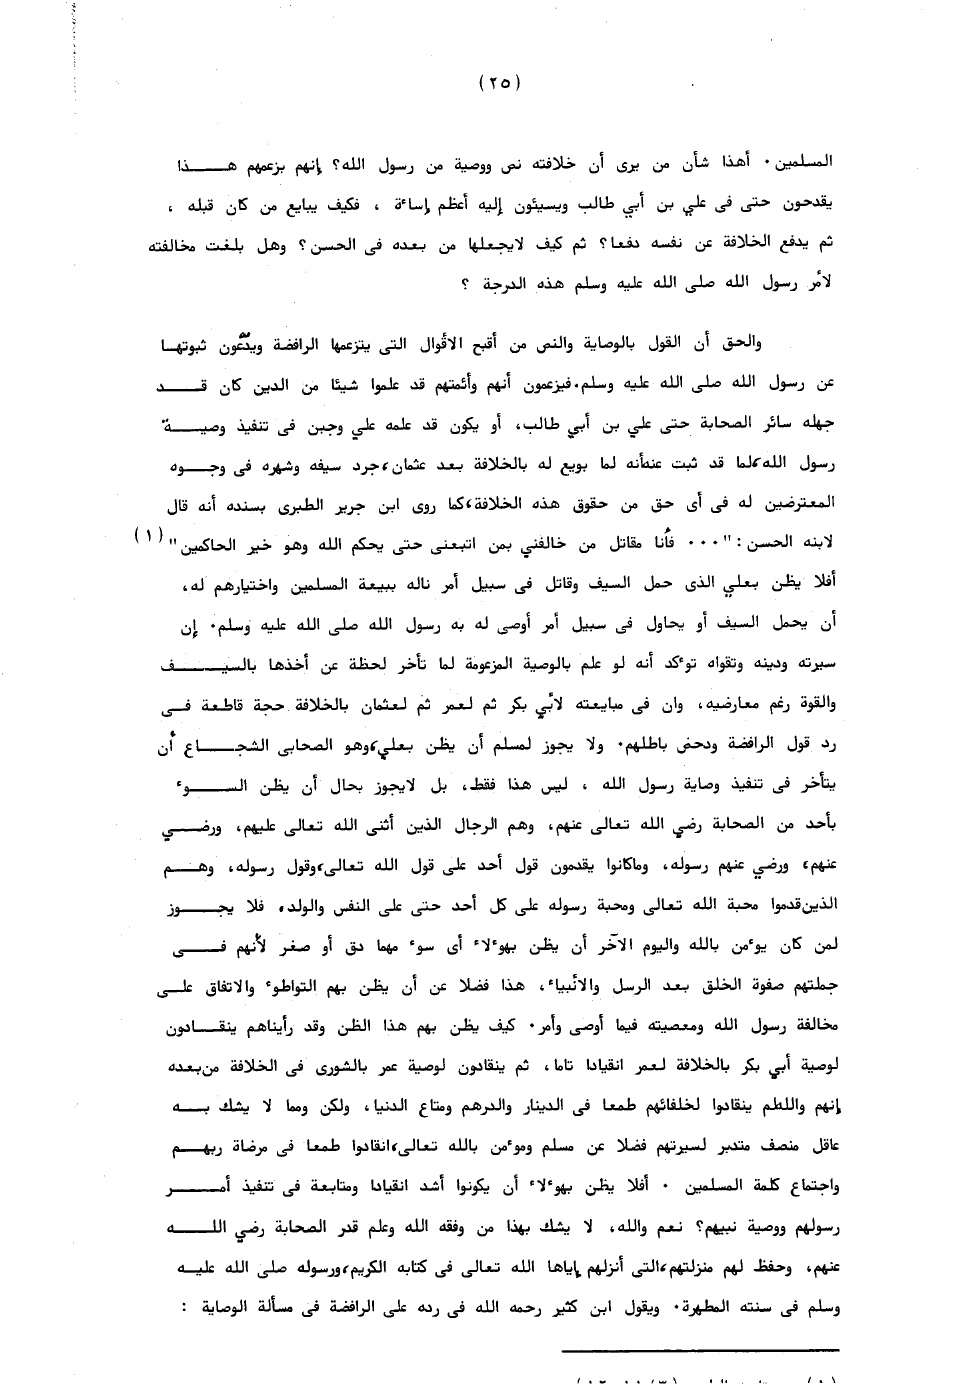 (٢٥)
المسلمين. أهذا شأن من يرى أن خلافته نص ووصية من رسول الله؟ إنهم بزعمهم هـــــذا
يقدحون حتى فى علي بن أبي طالب ويسيئون إليه أعظم إساءة ، فكيف يبايع من كان قبله ،
ثم يدفع الخلافة عن نفسه دفعا؟ ثم كيف لايجعلها من بعده فى الحسن؟ وهل بلغت مخالفته
لأمر رسول الله صلى الله عليه وسلم هذه الدرجة ؟
والحق أن القول بالوصاية والنص من أقبح الأقوال التى يتزعمها الرافضة ويدّعون ثبوتهـا
عن رسول الله صلى الله عليه وسلم.فيزعمون أنهم وأئمتهم قد علموا شيئا من الدين كان قــــد
جهله سائر الصحابة حتى علي بن أبي طالب، أو يكون قد علمه علي وجبن فى تنفيذ وصيـــة
رسول الله،لما قد ثبت عنه،أنه لما بويع له بالخلافة بعد عثمان،جرد سيفه وشهره فى وجـــوه
المعترضين له فى أى حق من حقوق هذه الخلافة،كما روى ابن جرير الطبرى بسنده أنه قال
لابنه الحسن: "... فأنا مقاتل من خالفني بمن اتبعنى حتى يحكم الله وهو خير الحاكمين"(١)
أفلا يظن بعلي الذى حمل السيف وقاتل فى سبيل أمر ناله ببيعة المسلمين واختيارهم له،
أن يحمل السيف أو يحاول فى سبيل أمر أوصى له به رسول الله صلى الله عليه وسلم. إن
سيرته ودينه وتقواه توءكد أنه لو علم بالوصية المزعومة لما تأخر لحظة عن أخذها بالسيـــــف
والقوة رغم معارضيه، وان فى مبايعته لأبي بكر ثم لعمر ثم لعثمان بالخلافة حجة قاطعة فــى
رد قول الرافضة ودحض باطلهم. ولا يجوز لمسلم أن يظن بعلي،وهو الصحابى الشجـــاع أن
يتأخر فى تنفيذ وصاية رسول الله ، ليس هذا فقط، بل لايجوز بحال أن يظن الســـــوء
بأحد من الصحابة رضي الله تعالى عنهم، وهم الرجال الذين أثنى الله تعالى عليهم، ورضـــي
عنهم، ورضي عنهم رسوله، وماكانوا يقدمون قول أحد على قول الله تعالى،وقول رسوله، وهــم
الذين قدموا محبة الله تعالى ومحبة رسوله على كل أحد حتى على النفس والولد، فلا يجــــوز
لمن كان يوءمن بالله واليوم الآخر أن يظن بهوءلاء أى سوء مهما دق أو صغر لأنهم فــــى
جملتهم صفوة الخلق بعد الرسل والأنبياء، هذا فضلا عن أن يظن بهم التواطوء والاتفاق علــى
مخالفة رسول الله ومعصيته فيما أوصى وأمر. كيف يظن بهم هذا الظن وقد رأيناهم ينقــادون
لوصية أبي بكر بالخلافة لعمر انقيادا تاما، ثم ينقادون لوصية عمر بالشورى فى الخلافة من بعده
إنهم والله لم ينقادوا لخلفائهم طمعا فى الدينار والدرهم ومتاع الدنيا، ولكن ومما لا يشك بــــه
عاقل منصف متدبر لسيرتهم فضلا عن مسلم وموءمن بالله تعالى،انقادوا طمعا فى مرضاة ربهــم
واجتماع كلمة المسلمين . أفلا يظن بهوءلاء أن يكونوا أشد انقيادا ومتابعة فى تنفيذ أمـــــر
رسولهم ووصية نبيهم؟ نعم والله، لا يشك بهذا من وفقه الله وعلم قدر الصحابة رضي اللــــه
عنهم، وحفظ لهم منزلتهم،التى أنزلهم إياها الله تعالى فى كتابه الكريم،ورسوله صلى الله عليــه
وسلم فى سنته المطهرة. ويقول ابن كثير رحمه الله فى رده على الرافضة فى مسألة الوصاية :